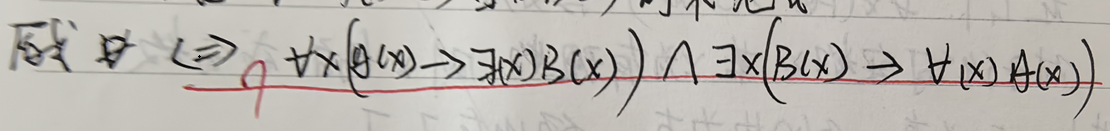 原式 ⟺ ∀x(A(x)→∃(x)B(x)) ∧ ∃x(B(x)→∀(x)A(x))